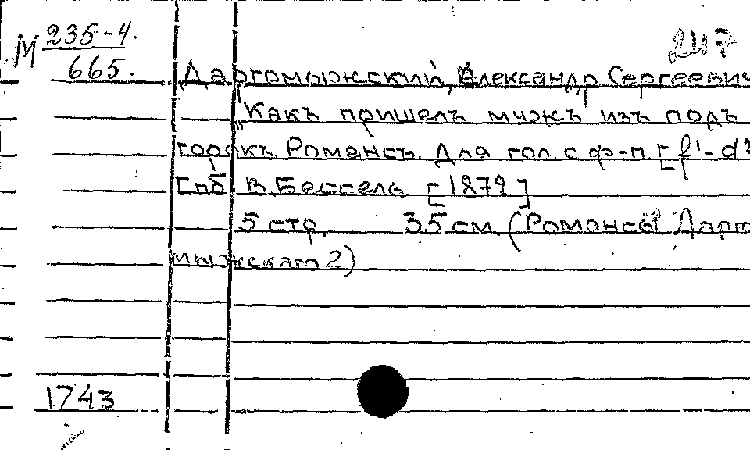 М 235-4.
665.
247
Даргомыжский, Александр Сергеевич
"Какъ пришелъ мужъ изъ подъ
горокъ. Романсъ. Для гол. с ф-п. [f¹-d²
Спб. В. Бессель [1879]
5 стр. 35 см. (Романсы Дарго
мыжскаго 2)
1743